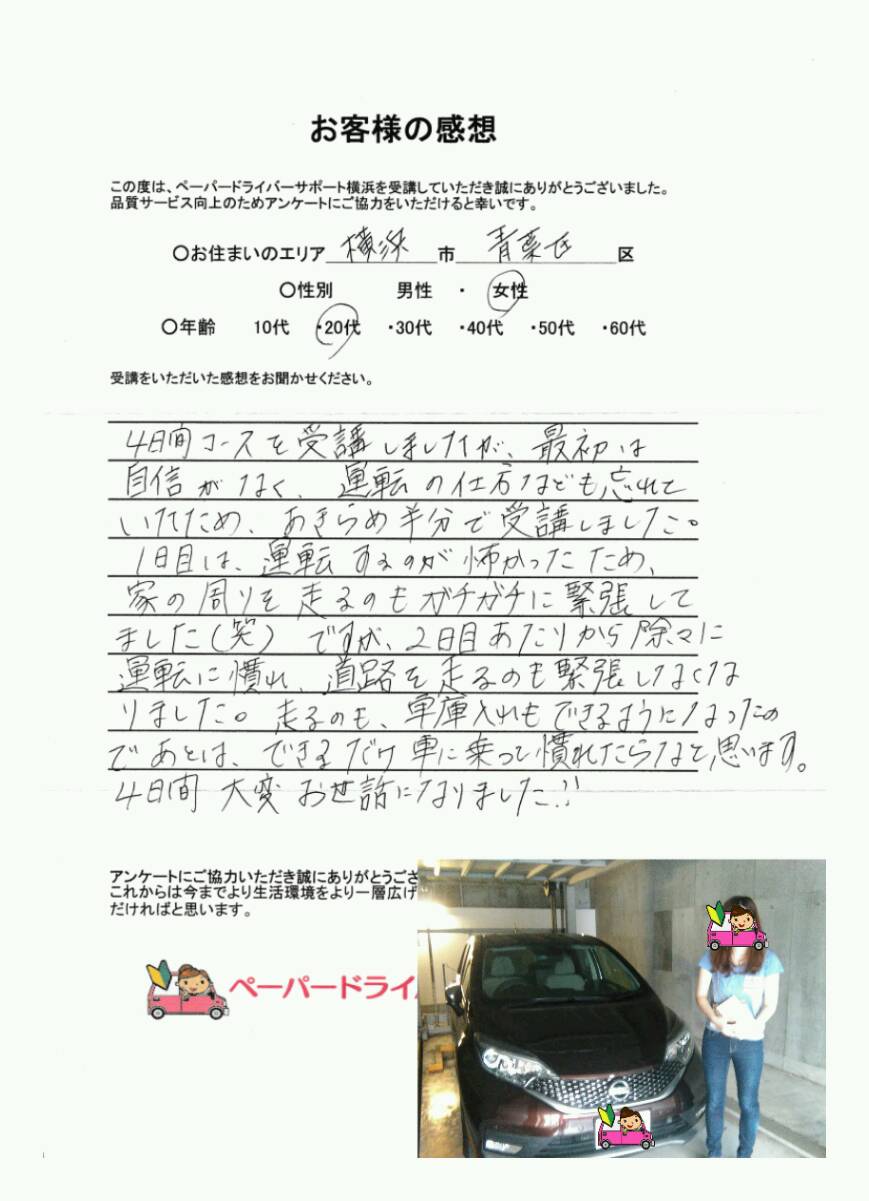 お客様の感想
この度は、ペーパードライバーサポート横浜を受講していただき誠にありがとうございました。
品質サービス向上のためアンケートにご協力をいただけると幸いです。
〇お住まいのエリア 横浜 市 青葉区 区
〇性別 男性 ・ 女性
〇年齢 10代 ・20代 ・30代 ・40代 ・50代 ・60代
受講をいただいた感想をお聞かせください。
4日間コースを受講しましたが、最初は
自信がなく、運転の仕方なども忘れて
いたため、あきらめ半分で受講しました。
1日目は、運転するのが怖かったため、
家の周りを走るのもガチガチに緊張して
ました(笑) ですが、2日目あたりから除々に
運転に慣れ、道路を走るのも緊張しなくな
りました。走るのも、車庫入れもできるようになったの
であとは、できるだけ車に乗って慣れたらなと思います。
4日間 大変お世話になりました!!
アンケートにご協力いただき誠にありがとうござ
これからは今までより生活環境をより一層広げ
だければと思います。
ペーパードライ